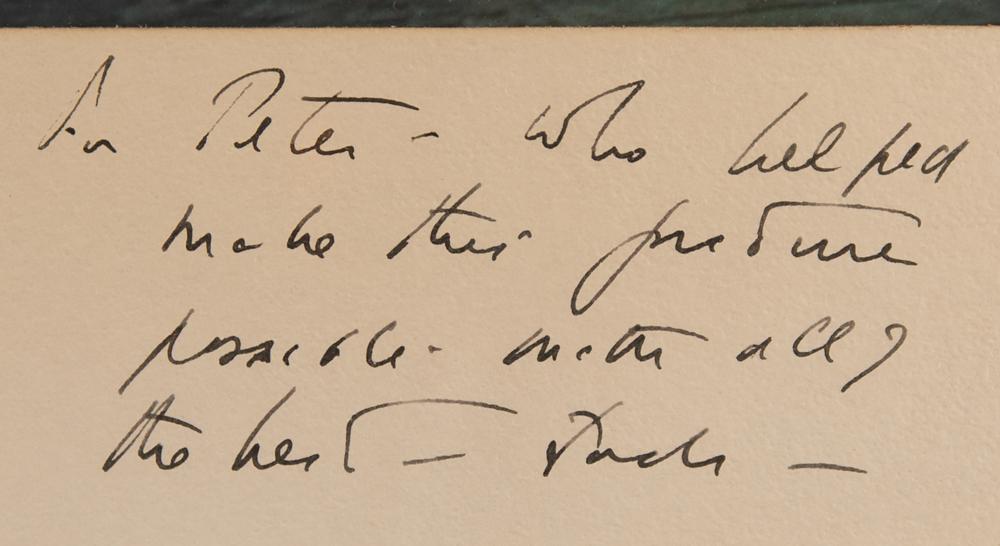 For Peter - who helped
make this picture
possible - with all
the best -